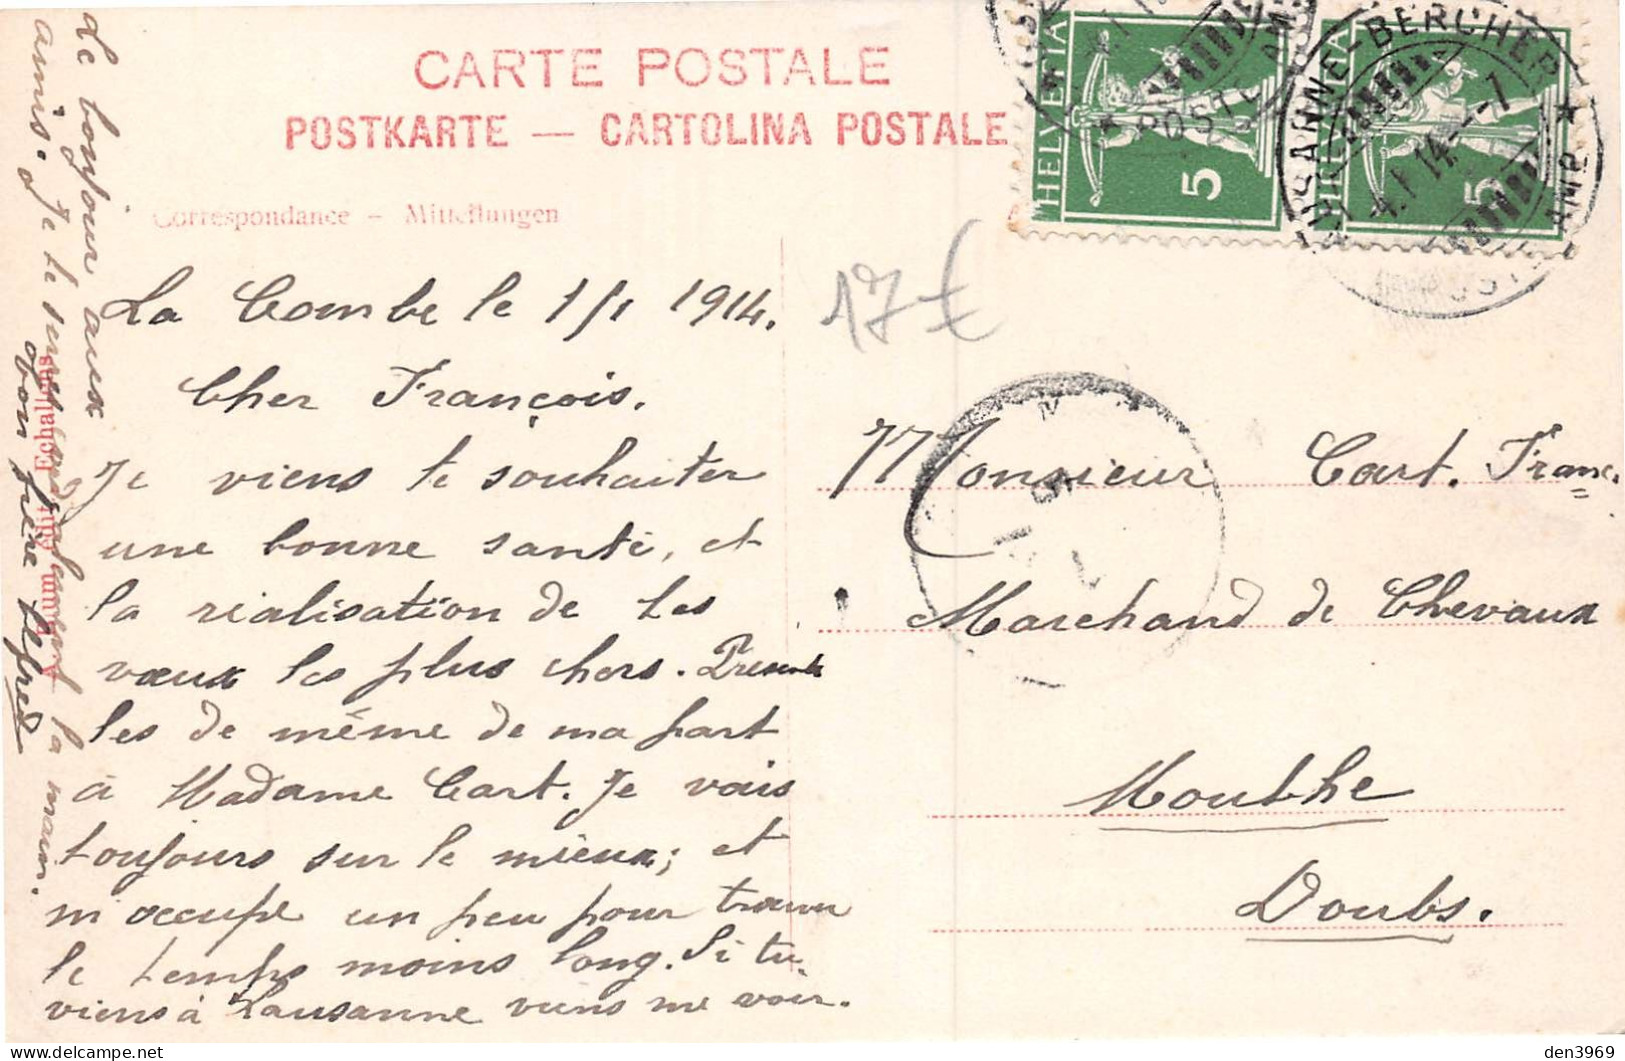 CARTE POSTALE
POSTKARTE — CARTOLINA POSTALE
Correspondance – Mitteilungen
HELVETIA
5
5
LAUSANNE-BERCHER
AMB
4.I.14.–7
17€
La Combe le 1/1 1914.
Cher François.
Je viens te souhaiter
une bonne santé, et
la réalisation de tes
vœux les plus chers. Présente
les de même de ma part
à Madame Cart. Je vais
toujours sur le mieux; et
m'occupe un peu pour trouver
le temps moins long. Si tu
viens à Lausanne viens me voir.
Le bonjour aux
amis. Je te serre
la main.
ton frère Alfred
Edit. Echallens
Monsieur Cart. Franç.
Marchand de Chevaux
Mouthe
Doubs.
den3969